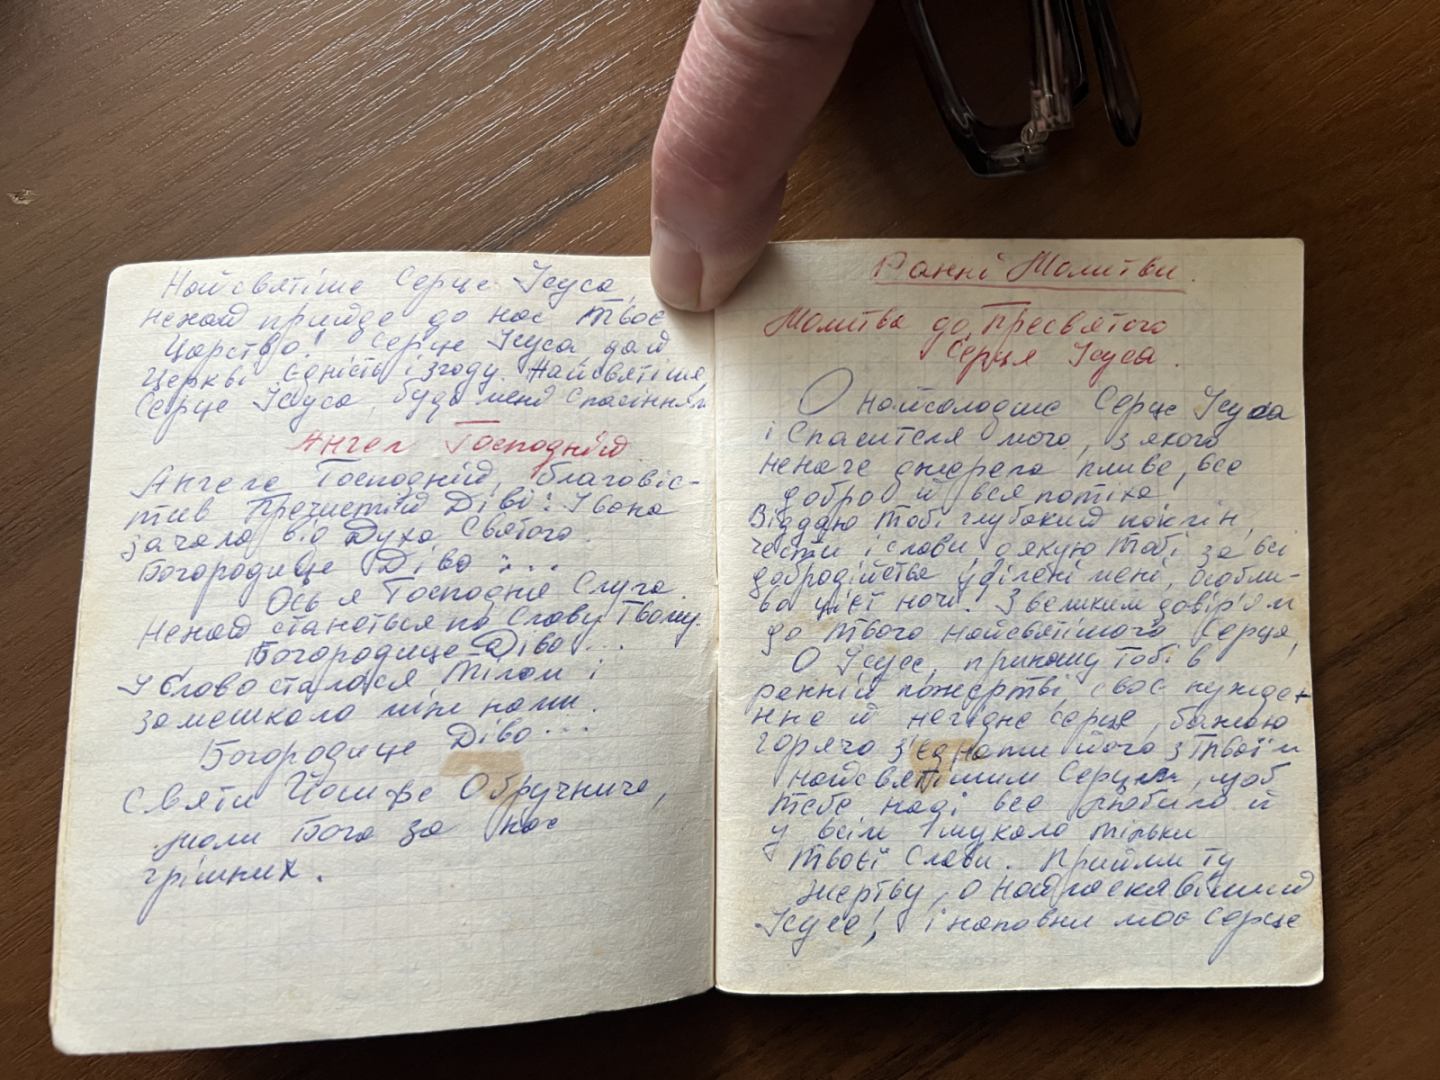 Найсвятіше Серце Ісуса,
нехай прийде до нас Твоє
Царство! Серце Ісуса дай
Церкві єдність і згоду. Найсвятіше
Серце Ісуса, будь мені спасінням
Ангел Господній.
Ангел Господній, благовіс-
тив Пречистій Діві: І вона
зачала від Духа Святого.
Богородице Діво :...
Ось я Господня Слуга.
Нехай станеться по Слову Твому.
Богородице Діво ...
І Слово сталося Тілом і
замешкало між нами.
Богородице Діво...
Святи Йосифе Обручниче,
моли Бога за нас
грішних.
Ранні Молитви.
Молитва до Пресвятого
Серця Ісуса.
О найсолодше Серце Ісуса
і Спасителя мого, з якого
неначе джерела пливе, все
добро й вся потіха!
Віддаю Тобі глубокий поклін,
чести і слави, дякую Тобі за всі
добродійства уділені мені, особли-
во цієї ночі. З великим довір'ям
до Твого найсвятішого Серця,
О Ісусе, приношу Тобі в
ренній пожертві, своє нужде+
нне й негідне серце, бажаю
горячо з'єднати його з Твоїм
найсвятішим Серцем, щоб
Тебе наді все любило й
у всім шукало тільки
Твоєї Слави. Прийми ту
жертву, о найласкавіший
Ісусе! і наповни моє серце